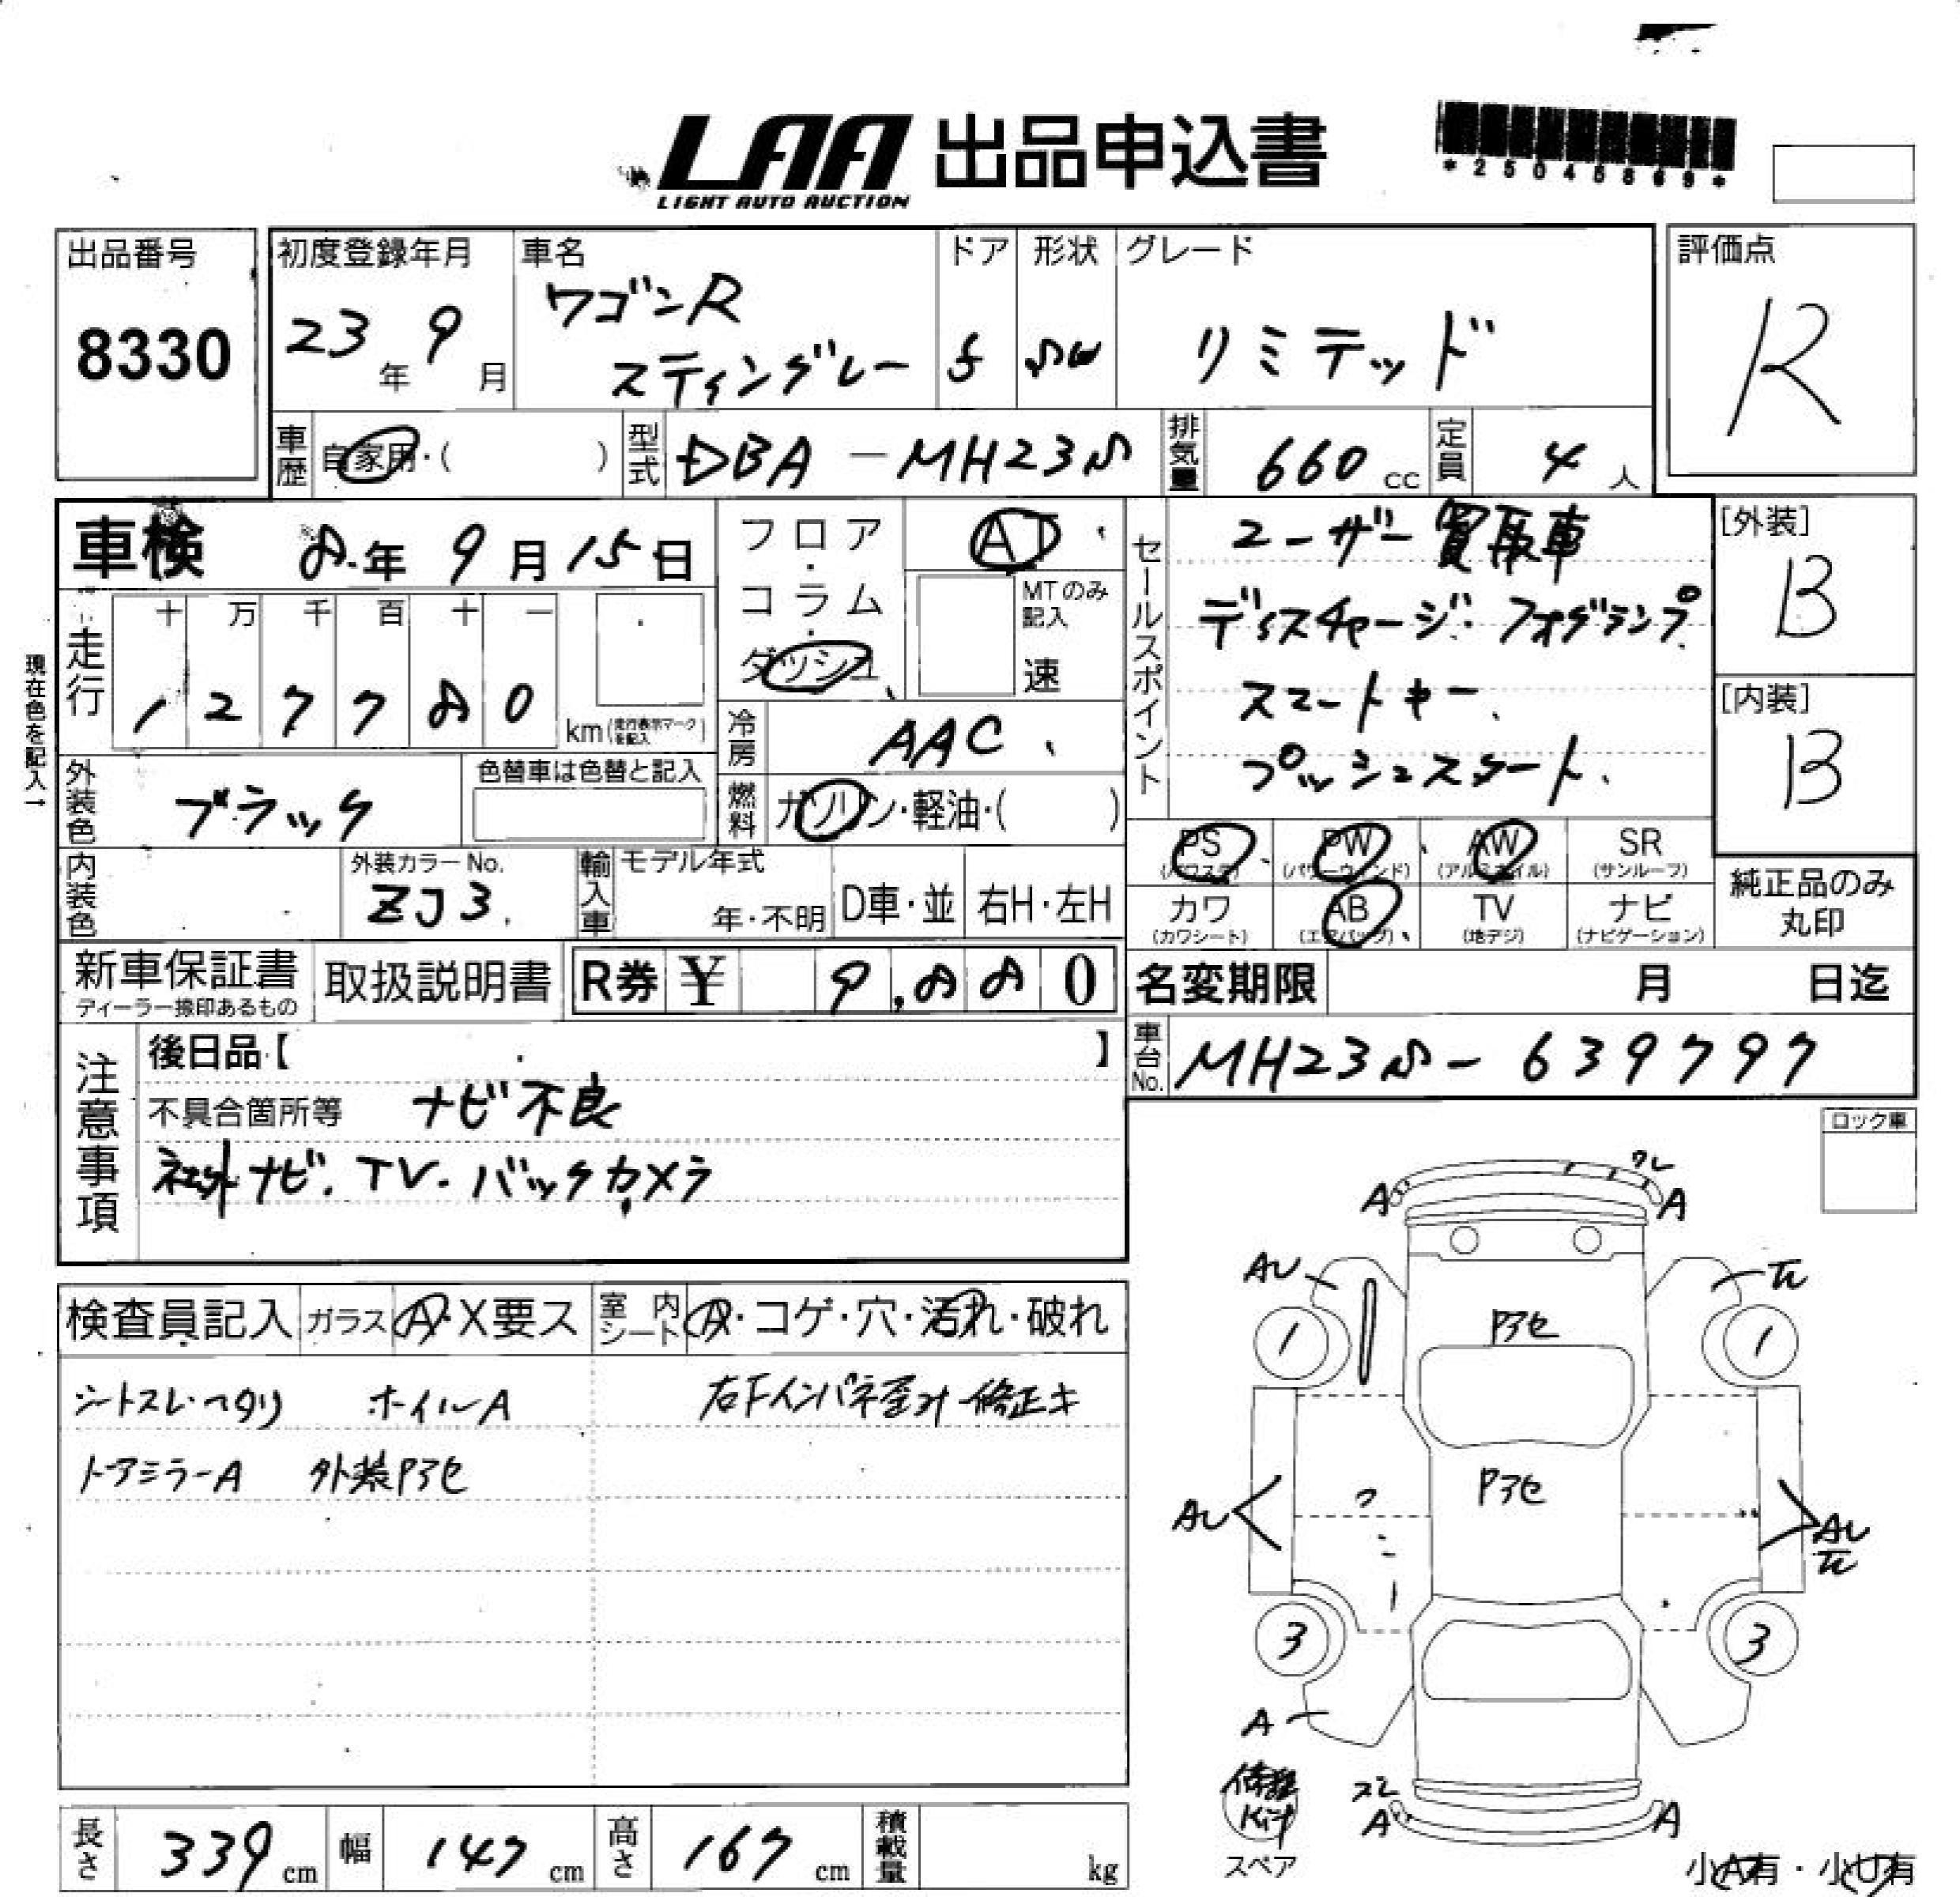 LAA 出品申込書
LIGHT AUTO AUCTION
*25045869*
出品番号
8330
初度登録年月
23年 9月
車名
ワゴンR
スティングレー
ドア
5
形状
SW
グレード
リミテッド
評価点
R
車歴
自家用・( )
型式
DBA-MH23S
排気量
660 cc
定員
4人
車検
8年 9月 15日
現在色を記入→
走行
十 万 千 百 十 一
1 2 7 7 8 0
km(走行表示マークを記入)
フロア・コラム・ダッシュ
AT
MTのみ記入
速
冷房
AAC
燃料
ガソリン・軽油・( )
セールスポイント
ユーザー買取車
ディスチャージ・フォグランプ
スマートキー
プッシュスタート
[外装]
B
[内装]
B
外装色
ブラック
色替車は色替と記入
内装色
外装カラーNo.
ZJ3
輸入車
モデル年式
年・不明
D車・並
右H・左H
PS (パワステ)
PW (パワーウィンド)
AW (アルミホイル)
SR (サンルーフ)
カワ (カワシート)
AB (エアバッグ)
TV (地デジ)
ナビ (ナビゲーション)
純正品のみ丸印
新車保証書
ディーラー捺印あるもの
取扱説明書
R券 ¥ 9,880
名変期限 月 日迄
車台No.
MH23S-639797
注意事項
後日品【 】
不具合箇所等 ナビ不良
社外ナビ.TV.バックカメラ
ロック車
検査員記入
ガラス A・X要ス
室内シート
A・コゲ・穴・汚れ・破れ
シートスレ・ヘタリ ホイルA
右Fインパネ歪み修正キ
ドアミラーA 外装Pアセ
ワレ
A A
AU
1 1
Pアセ
Pアセ
AU
AU
3 3
A
スレ
A A
修理Kit
スペア
小A有・小U有
長さ 339 cm
幅 147 cm
高さ 167 cm
積載量 kg